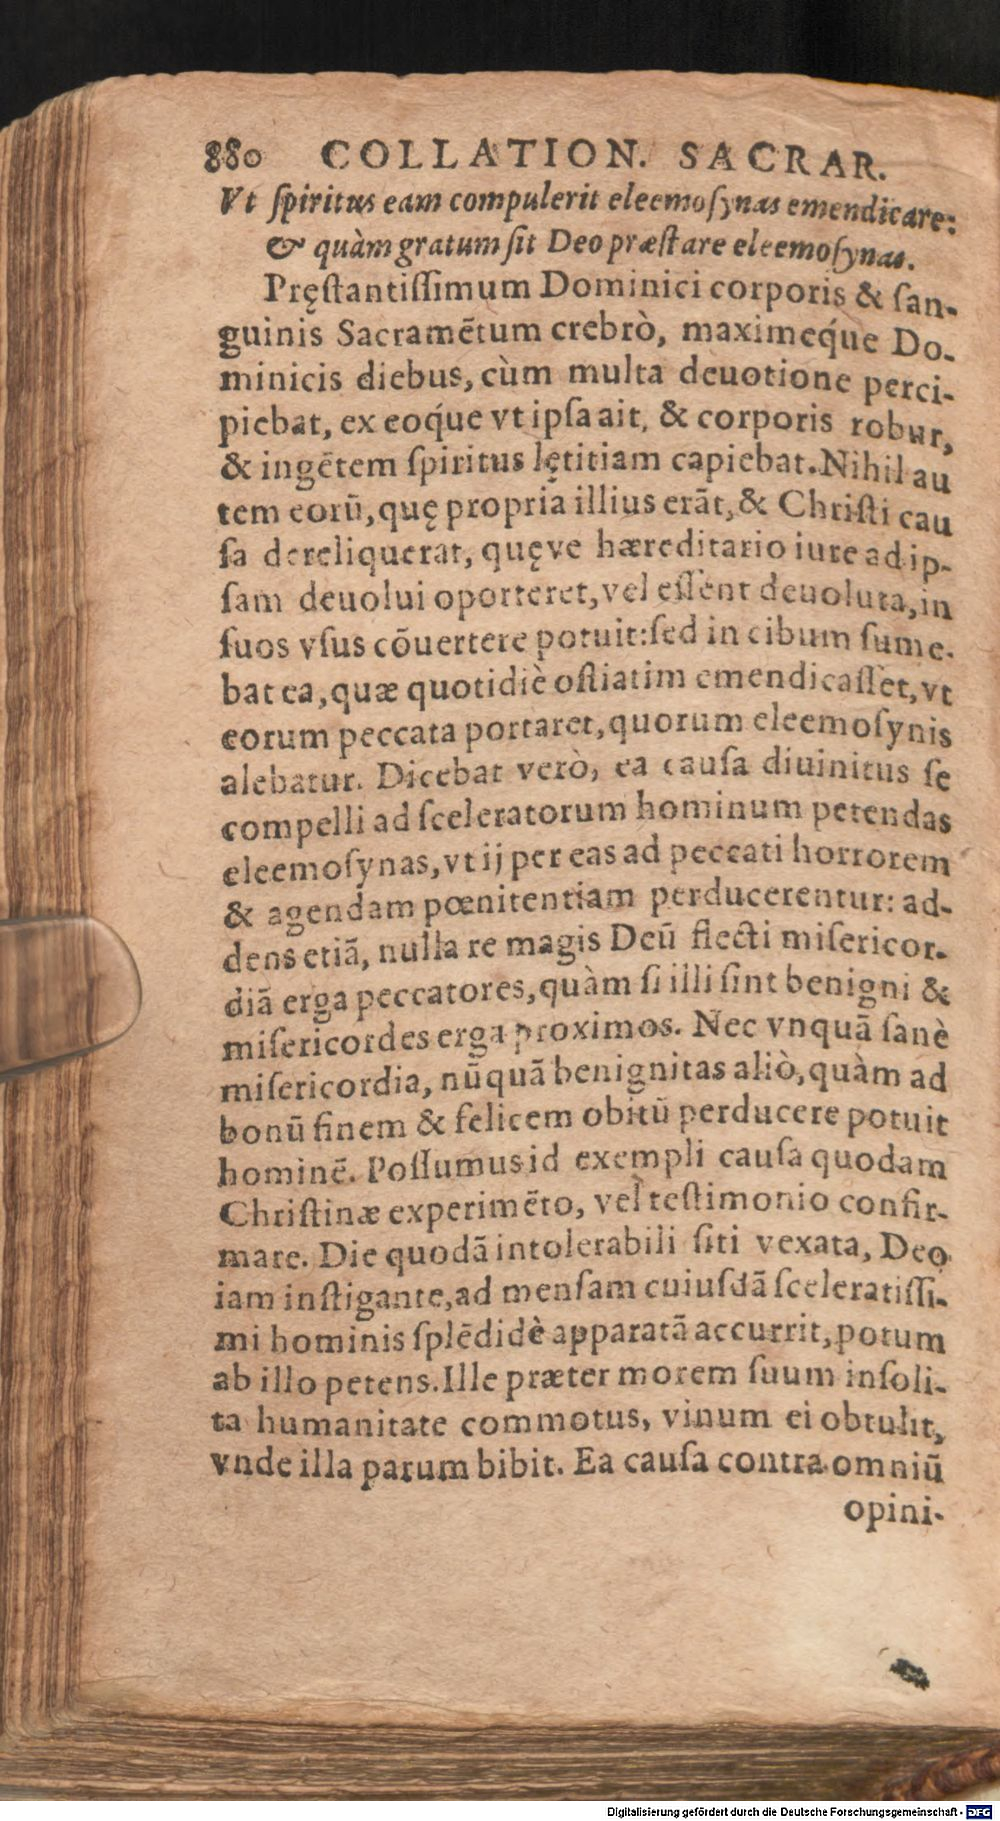 880 COLLATION. SACRAR.
Vt ſpiritus eam compulerit eleemoſynas emendicare:
& quàm gratum ſit Deo præſtare eleemoſynas.
Pręſtantiſſimum Dominici corporis & ſan-
guinis Sacramētum crebrò, maximeq́ue Do-
minicis diebus, cùm multa deuotione perci-
piebat, ex eoq́ue vt ipſa ait, & corporis robur,
& ingētem ſpiritus lętitiam capiebat. Nihil au
tem eorū, quę propria illius erāt, & Chriſti cau
ſa dereliquerat, quęve hæreditario iure ad ip-
ſam deuolui oporteret, vel eſſent deuoluta, in
ſuos vſus cōuertere potuit: ſed in cibum ſume-
bat ea, quæ quotidiè oſtiatim emendicaſſet, vt
eorum peccata portaret, quorum eleemoſynis
alebatur. Dicebat verò, ea cauſa diuinitus ſe
compelli ad ſceleratorum hominum petendas
eleemoſynas, vt ij per eas ad peccati horrorem
& agendam pœnitentiam perducerentur: ad-
dens etiā, nulla re magis Deū flecti miſericor-
diā erga peccatores, quàm ſi illi ſint benigni &
miſericordes erga proximos. Nec vnquā ſanè
miſericordia, nūquā benignitas aliò, quàm ad
bonū finem & felicem obitū perducere potuit
hominē. Poſſumus id exempli cauſa quodam
Chriſtinæ experimēto, vel teſtimonio confir-
mare. Die quodā intolerabili ſiti vexata, Deo
iam inſtigante, ad menſam cuiuſdā ſceleratiſſi-
mi hominis ſplēdidè apparatā accurrit, potum
ab illo petens. Ille præter morem ſuum inſoli-
ta humanitate commotus, vinum ei obtulit,
vnde illa parum bibit. Ea cauſa contra omniū
opini-
Digitalisierung gefördert durch die Deutsche Forschungsgemeinschaft - DFG